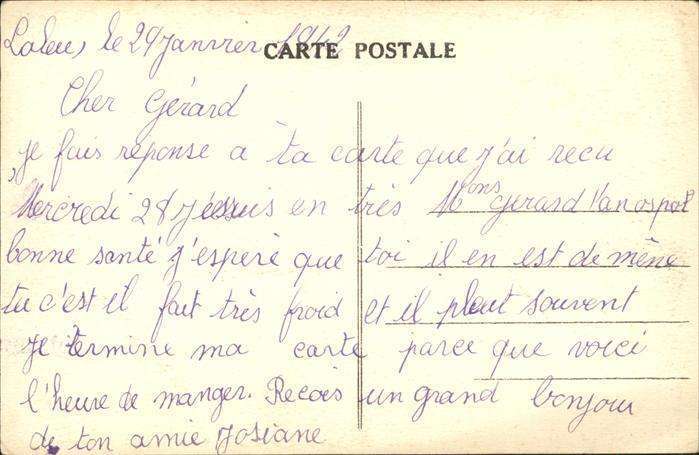 Laleu, le 29 Janvier 1942
CARTE POSTALE
Cher Gérard
je fais réponse a ta carte que j'ai recu
Mercredi 28 je suis en très
Mons Gerard
bonne santé j'espère que toi il en est de même
tu c'est il fait très froid et il pleut souvent
je termine ma carte parce que voici
l'heure de manger. Recois un grand bonjour
de ton amie Josiane